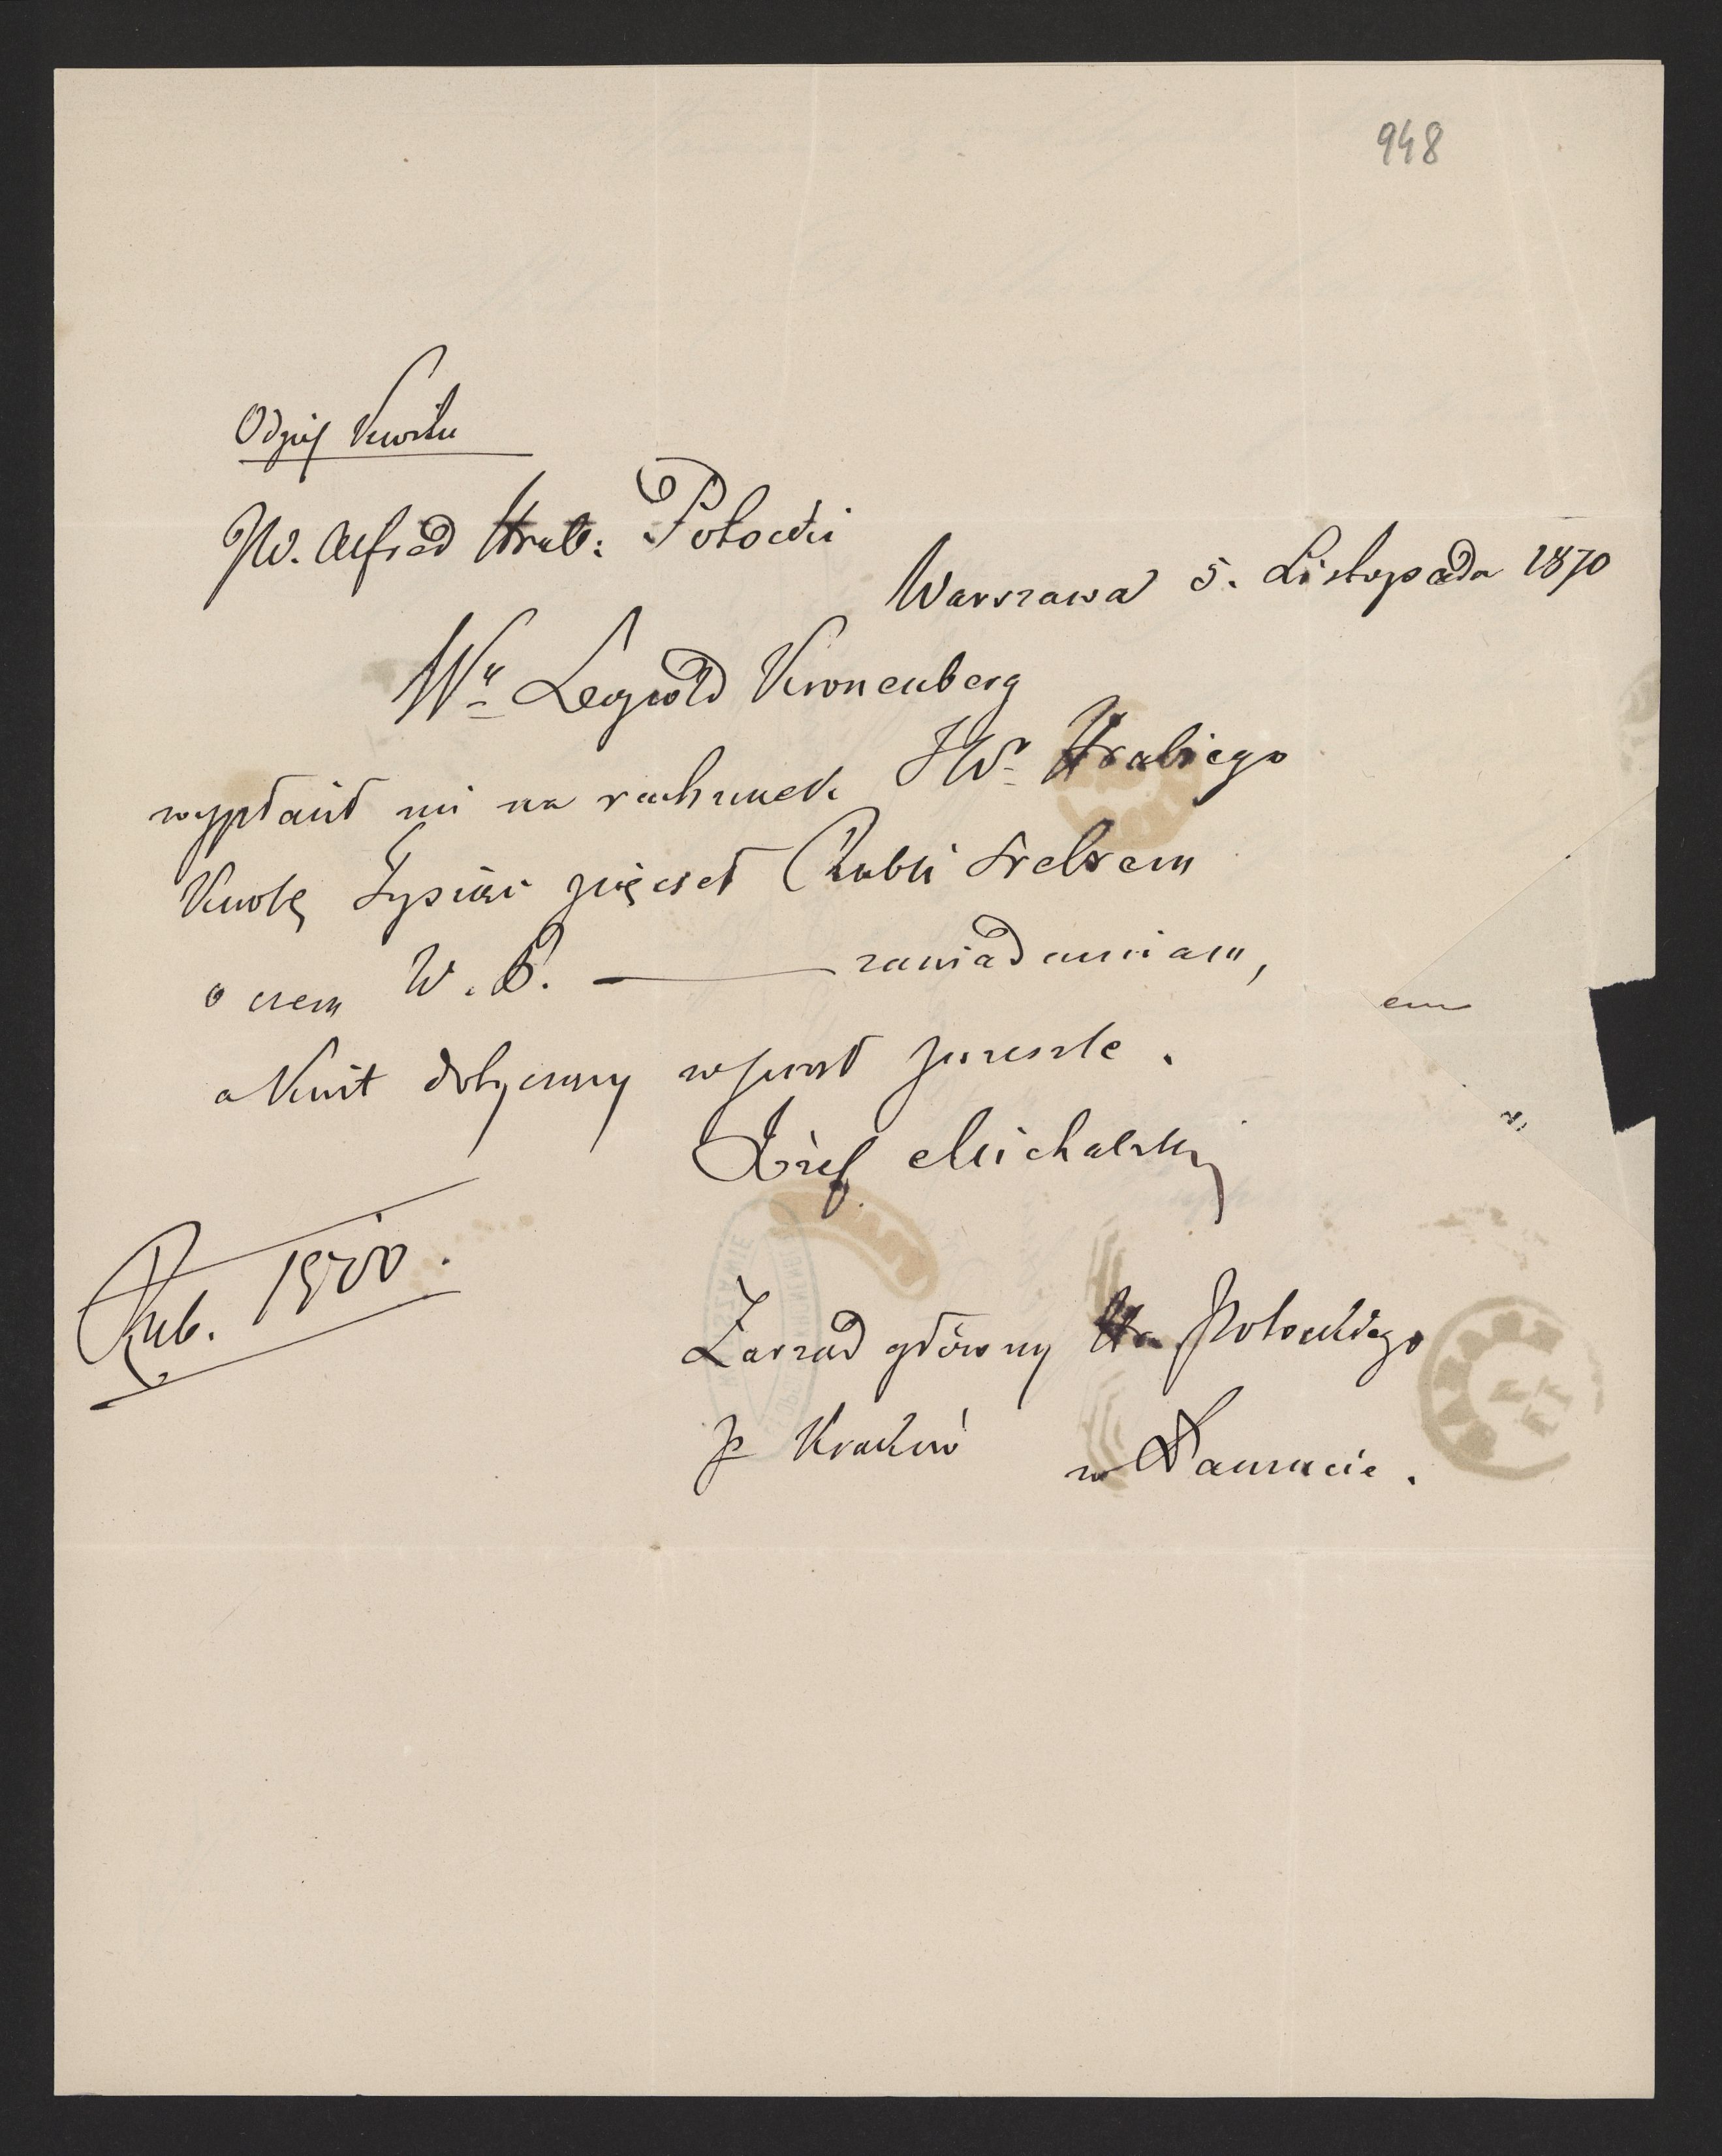 948
Odpis Kwitu
JW. Alfred Hrab: Potocki
Warszawa 5. Listopada 1870
Wy Leopold Kronenberg
wypłacił mi na rachunek JWo Hrabiego
Kwotę Tysiąc pięcset Rubli srebrem
o czem W. P. — zawiadamiam,
a Kwit dotyczący wprost prześle.
Józef Michalski
Rub. 1500.
Zarząd główny Hr Potockiego
p Kraków w Łańcucie.